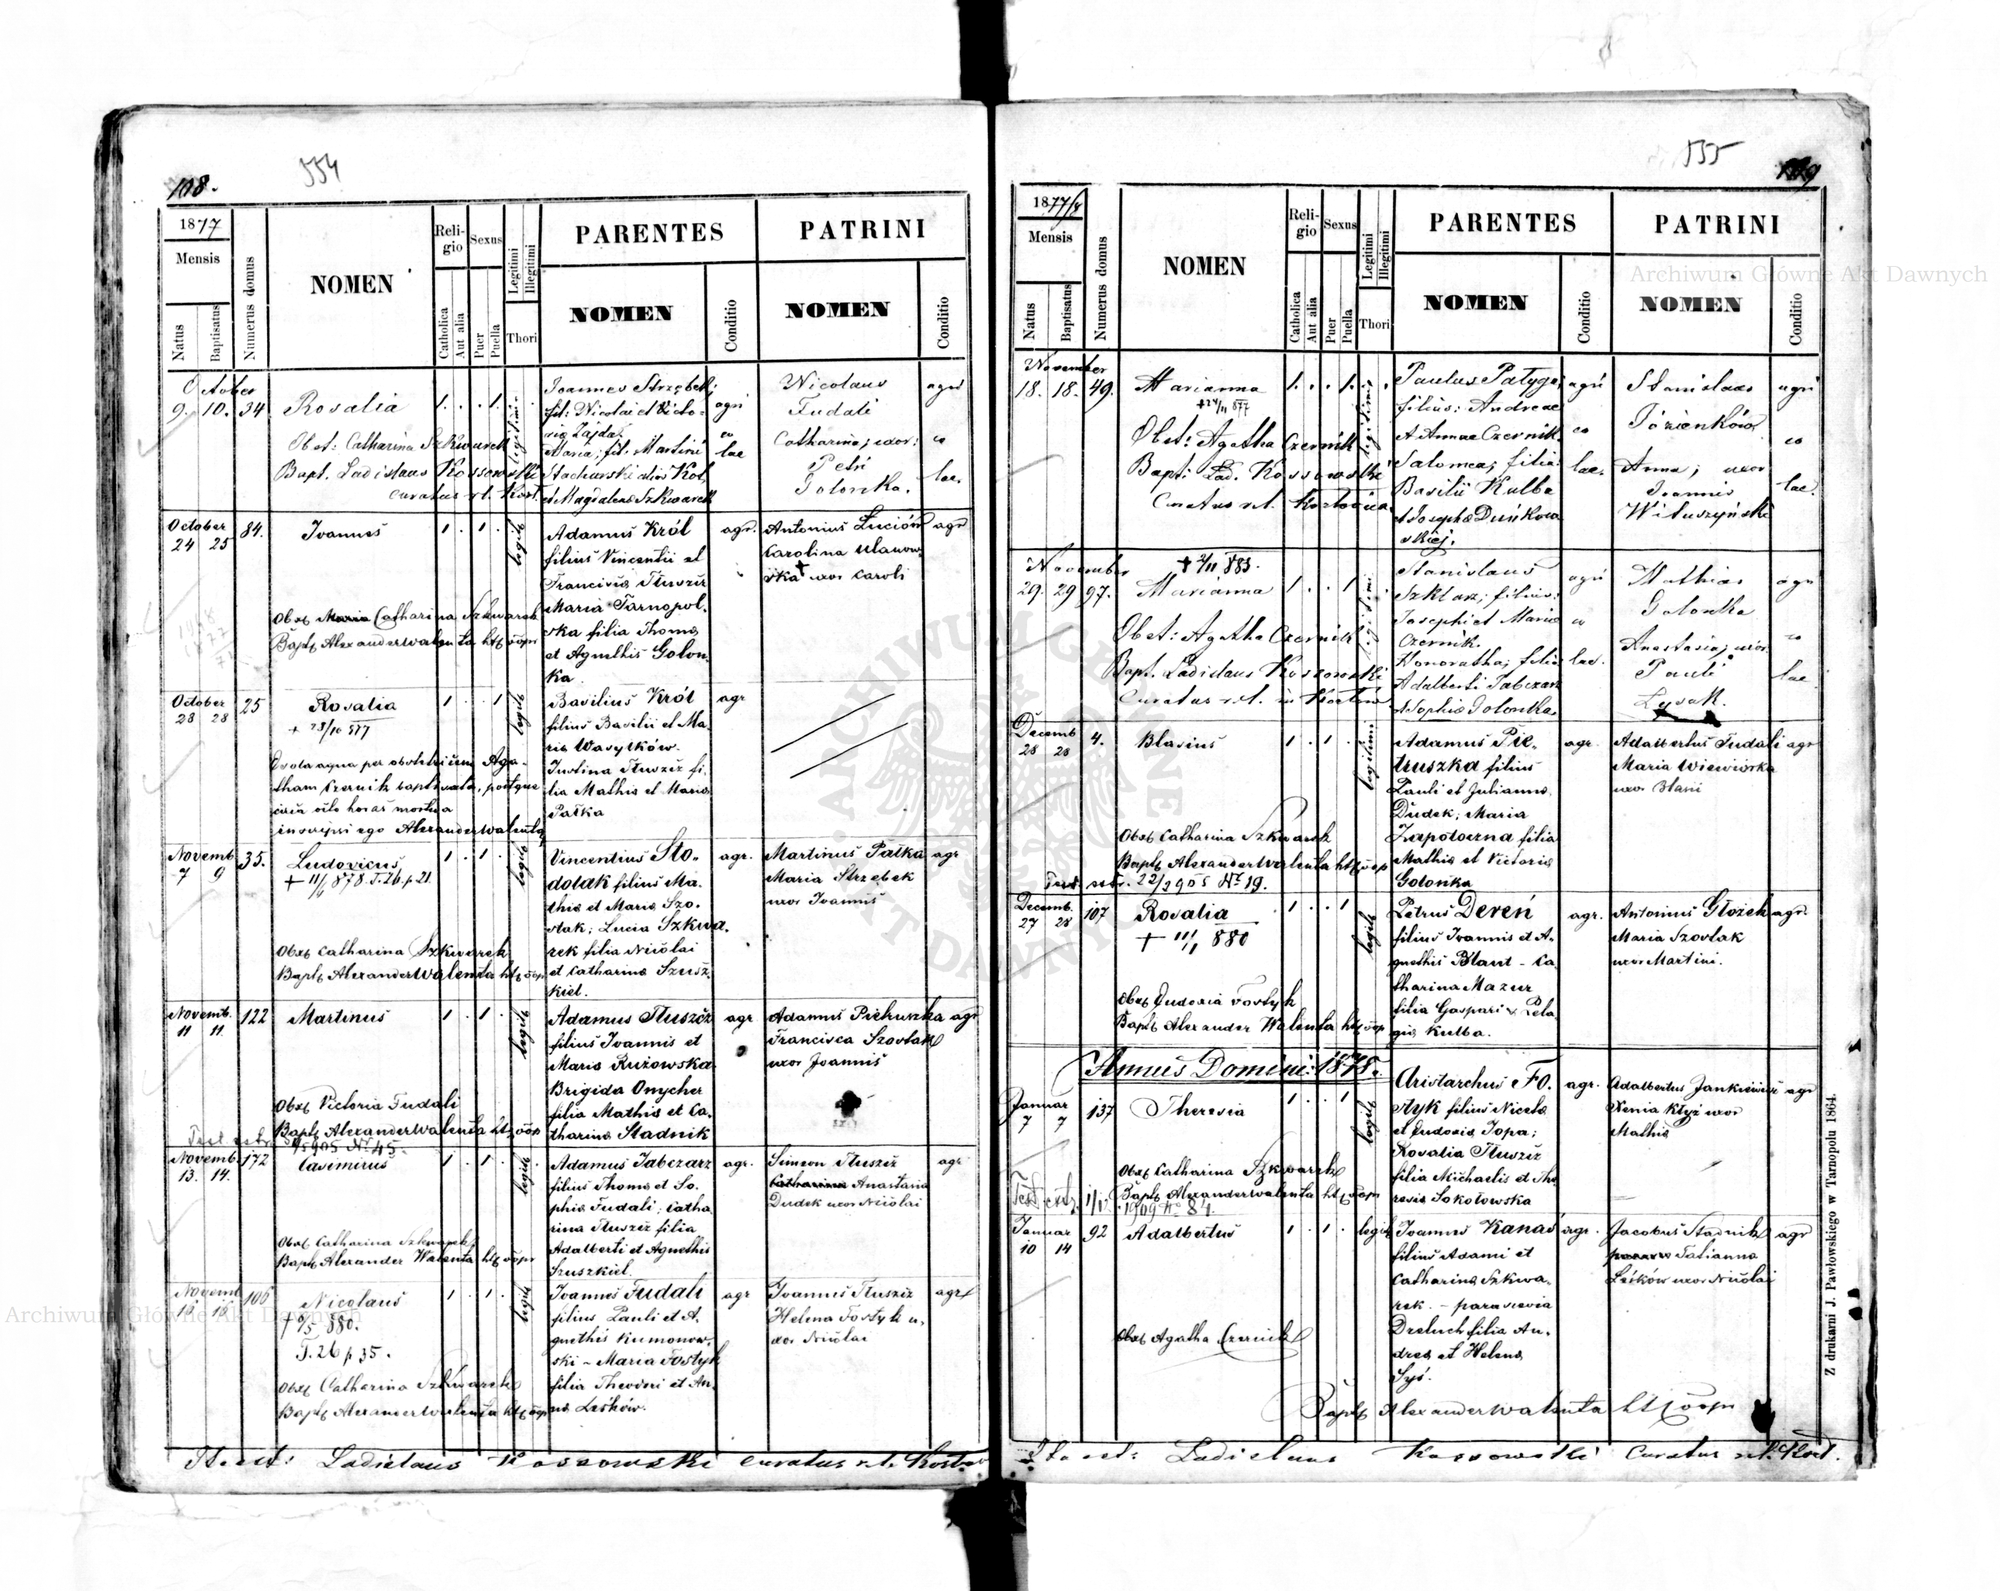 108.
554
1877
Mensis
Natus
Baptisatus
Numerus domus
NOMEN
Religio
Catholica
Aut alia
Sexus
Puer
Puella
Legitimi
Illegitimi
Thori
PARENTES
NOMEN
Conditio
PATRINI
NOMEN
Conditio
October
9. 10. 34
Rosalia
1. . . 1.
legitimi
Obst: Catharina Szkwarek
Bapt. Ladislaus Kossowski
curatus r.l. Kozł.
Joannes Strzębek;
fil: Nicolai et Victo-
ria Zajda.
Maria; fil. Martini
Stachurski alias Kot,
et Magdalena Szkwarek
agri
co
lae
Nicolaus
Fudali
Catharina; uxor:
Petri
Golonka.
agri
co
lae.
October
24 25 84.
Joannes
1 . 1 .
legit
Obst Catharina Szkwarek
Bapt Alexander Walenta
Adamus Król
filius Vincentii et
Francisca Tłuszcz
Maria Tarnopol-
ska filia Thoma
et Agnethis Golon-
ka.
agr.
Antonius
Carolina Ulanow
ska uxor Caroli
agr
October
28 28 25
Rosalia
+ 28/10 877
1 . . 1
legit
Ex sola aqua per obstetricem Aga-
tham Czernik baptisata, postque
octo horas mortua
inscripsi ego Alexander Walenta
Basilius Król
filius Basilii et Ma-
ria Wasylków.
Justina Tłuszcz fi-
lia Mathia et Maria
Pałka
agr
Novemb.
7 9 35.
Ludovicus
+ 11/1 878. T.26. p. 21
1 . 1 .
legit
Obst Catharina Szkwarek
Bapt Alexander Walenta
Vincentius Sto-
dolak filius Ma-
thia et Maria Szo-
stak; Lucia Szkwa-
rek filia Nicolai
et Catharina Szusz-
kiel.
agr.
Martinus Pałka
Maria Strzębek
uxor Joannis
agr
Novemb.
11 11 122
Martinus
1 . 1 .
legit
Obst Victoria Fudali
Bapt Alexander Walenta
Adamus Tłuszcz
filius Joannis et
Maria Ruzowska
Brigida Onycher
filia Mathia et Ca-
tharina Stadnik
agr
Adamus Pietruszka
Francisca Szostak
uxor Joannis
agr
1905 Nr 45.
Novemb.
13. 14. 172
Casimirus
1 . 1 .
legit
Obst Catharina Szkwarek
Bapt Alexander Walenta
Adamus Tabczarz
filius Thoma et So-
phia Fudali; Catha-
rina Tłuszcz filia
Adalberti et Agnethis
Szuszkiel.
agr.
Simeon Tłuszcz
Anastasia
Dudek uxor Nicolai
agr
Novemb
106
Nicolaus
880.
T. 26 p. 35.
1 . 1 .
legit
Obst Catharina Szkwarek
Bapt Alexander Walenta
Joannes Fudali
filius Pauli et A-
gnethis Kumonow-
ski - Maria Fostyk
filia Theodori et An-
na Leśków.
agr
Joannes Tłuszcz
Helena Fostyk u-
xor Nicolai
agr
Ita est: Ladislaus Kossowski curatus r.l. Kozłow
555
1877/8
Mensis
Natus
Baptisatus
Numerus domus
NOMEN
Religio
Catholica
Aut alia
Sexus
Puer
Puella
Legitimi
Illegitimi
Thori
PARENTES
NOMEN
Conditio
PATRINI
NOMEN
Conditio
November
18. 18. 49.
Marianna
+ 24/11 877
1. . . 1.
legitimi
Obst: Agatha Czernik
Bapt: Lad. Kossowski
Curatus r.l. Kozłovia
Paulus Patyga;
filius: Andreae
et Anna Czernik.
Salomea; filia:
Basilii Kulba
et Josepha Duńkow
skiej.
agri
co
lae.
Stanislaus
Józienków
Anna; uxor
Joannis
Wituszyński
agri
co
lae.
November
29. 29 97.
+ 2/11 883.
Marianna
1 . . 1
legitimi
Obst: Agatha Czernik
Bapt. Ladislaus Kossowski
Curatus r.l. in Kozłów.
Stanislaus
Szklarz; filius:
Josephi et Maria
Czernik.
Honoratha; filia
Adalberti Tabczarz
et Sophia Golonka
agri
co
lae.
Mathias
Golonka
Anastasia; uxor
Pauli
Łysak.
agri
co
lae.
Decemb
28 28 4.
Blasius
1 . 1 .
legitimi
Obst Catharina Szkwarek
Bapt Alexander Walenta
22/2 905 Nr 19.
Adamus Pie-
truszka filius
Pauli et Julianna
Dudek; Maria
Zapotoczna filia
Mathia et Victoria
Golonka
agr.
Adalbertus Fudali
Maria Wiewiórka
uxor Blasii
agr
Decemb.
27 28 107
Rosalia
+ 11/1 880
1 . . 1
legit
Obst Eudoxia Fostyk
Bapt Alexander Walenta
Petrus Dereń
filius Joannis et A-
gnethis Blaut - Ca-
tharina Mazur
filia Gaspari et Pela-
gia Kulba.
agr.
Antonius Głożek
Maria Szostak
uxor Martini.
agr.
Annus Domini 1878.
Januar
7 7 137
Theresia
1 . . 1
legit
Obst Catharina Szkwarek
Bapt Alexander Walenta
1909 Nr 84.
Aristarchus Fo-
styk filius Niceta
et Eudoxia Topa;
Rosalia Tłuszcz
filia Michaelis et The
resia Sokołowska
agr.
Adalbertus Jankiewicz
Xenia Kłyż uxor
Mathia
agr
Januar
10 14 92
Adalbertus
1 . 1 .
legit
Obst Agatha Czernik
Joannes Kanas
filius Adami et
Catharina Szkwa-
rek. - parascevia
Dzeluch filia An-
drea et Helena
Syś.
agr.
Jacobus Stadnik
Tatianna
Leśków uxor Nicolai
agr
Bapt Alexander Walenta
Ita est: Ladislaus Kossowski Curatus r.l. Kozł.
Z drukarni J. Pawłowskiego w Tarnopolu 1864.
Archiwum Główne Akt Dawnych
Archiwum Główne Akt Dawnych
ARCHIWUM GŁÓWNE AKT DAWNYCH